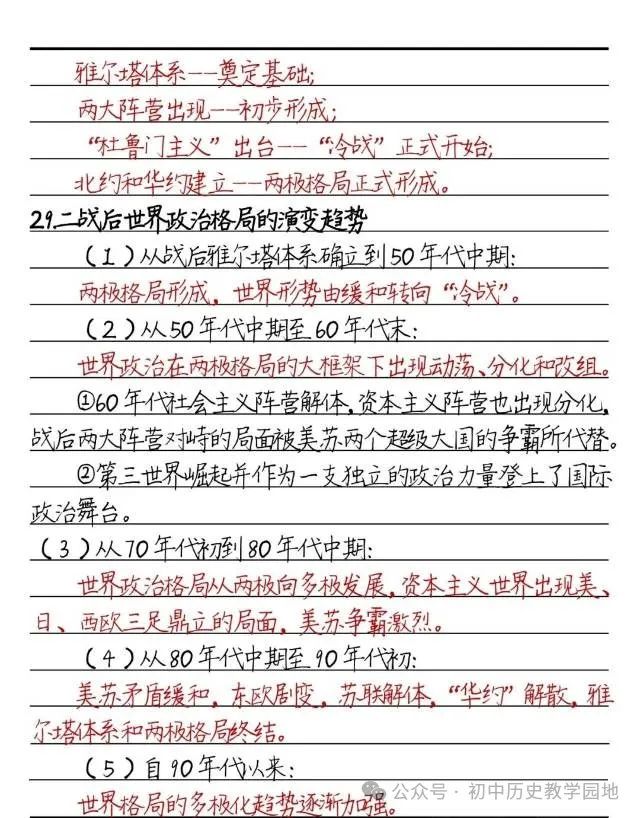 雅尔塔体系——奠定基础;
两大阵营出现——初步形成;
“杜鲁门主义”出台——“冷战”正式开始;
北约和华约建立——两极格局正式形成。
29.二战后世界政治格局的演变趋势
(1)从战后雅尔塔体系确立到50年代中期:
两极格局形成,世界形势由缓和转向“冷战”。
(2)从50年代中期至60年代末:
世界政治在两极格局的大框架下出现动荡、分化和改组。
①60年代社会主义阵营解体,资本主义阵营也出现分化,
战后两大阵营对峙的局面被美苏两个超级大国的争霸所代替。
②第三世界崛起并作为一支独立的政治力量登上了国际
政治舞台。
(3)从70年代初到80年代中期:
世界政治格局从两极向多极发展,资本主义世界出现美、
日、西欧三足鼎立的局面,美苏争霸激烈。
(4)从80年代中期至90年代初:
美苏矛盾缓和,东欧剧变,苏联解体,“华约”解散,雅
尔塔体系和两极格局终结。
(5)自90年代以来:
世界格局的多极化趋势逐渐加强。
公众号·初中历史教学园地